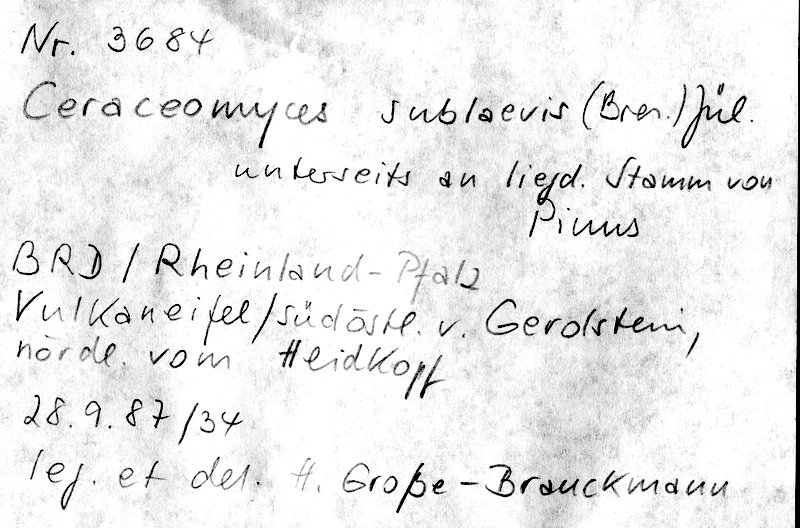 Nr. 3684
Ceraceomyces sublaevis (Bres.) Jül.
unterseits an liegd. Stamm von
Pinus
BRD / Rheinland-Pfalz
Vulkaneifel / südöstl. v. Gerolstein,
nördl. vom Heidkopf
28.9.87/34
leg. et det. H. Große-Brauckmann